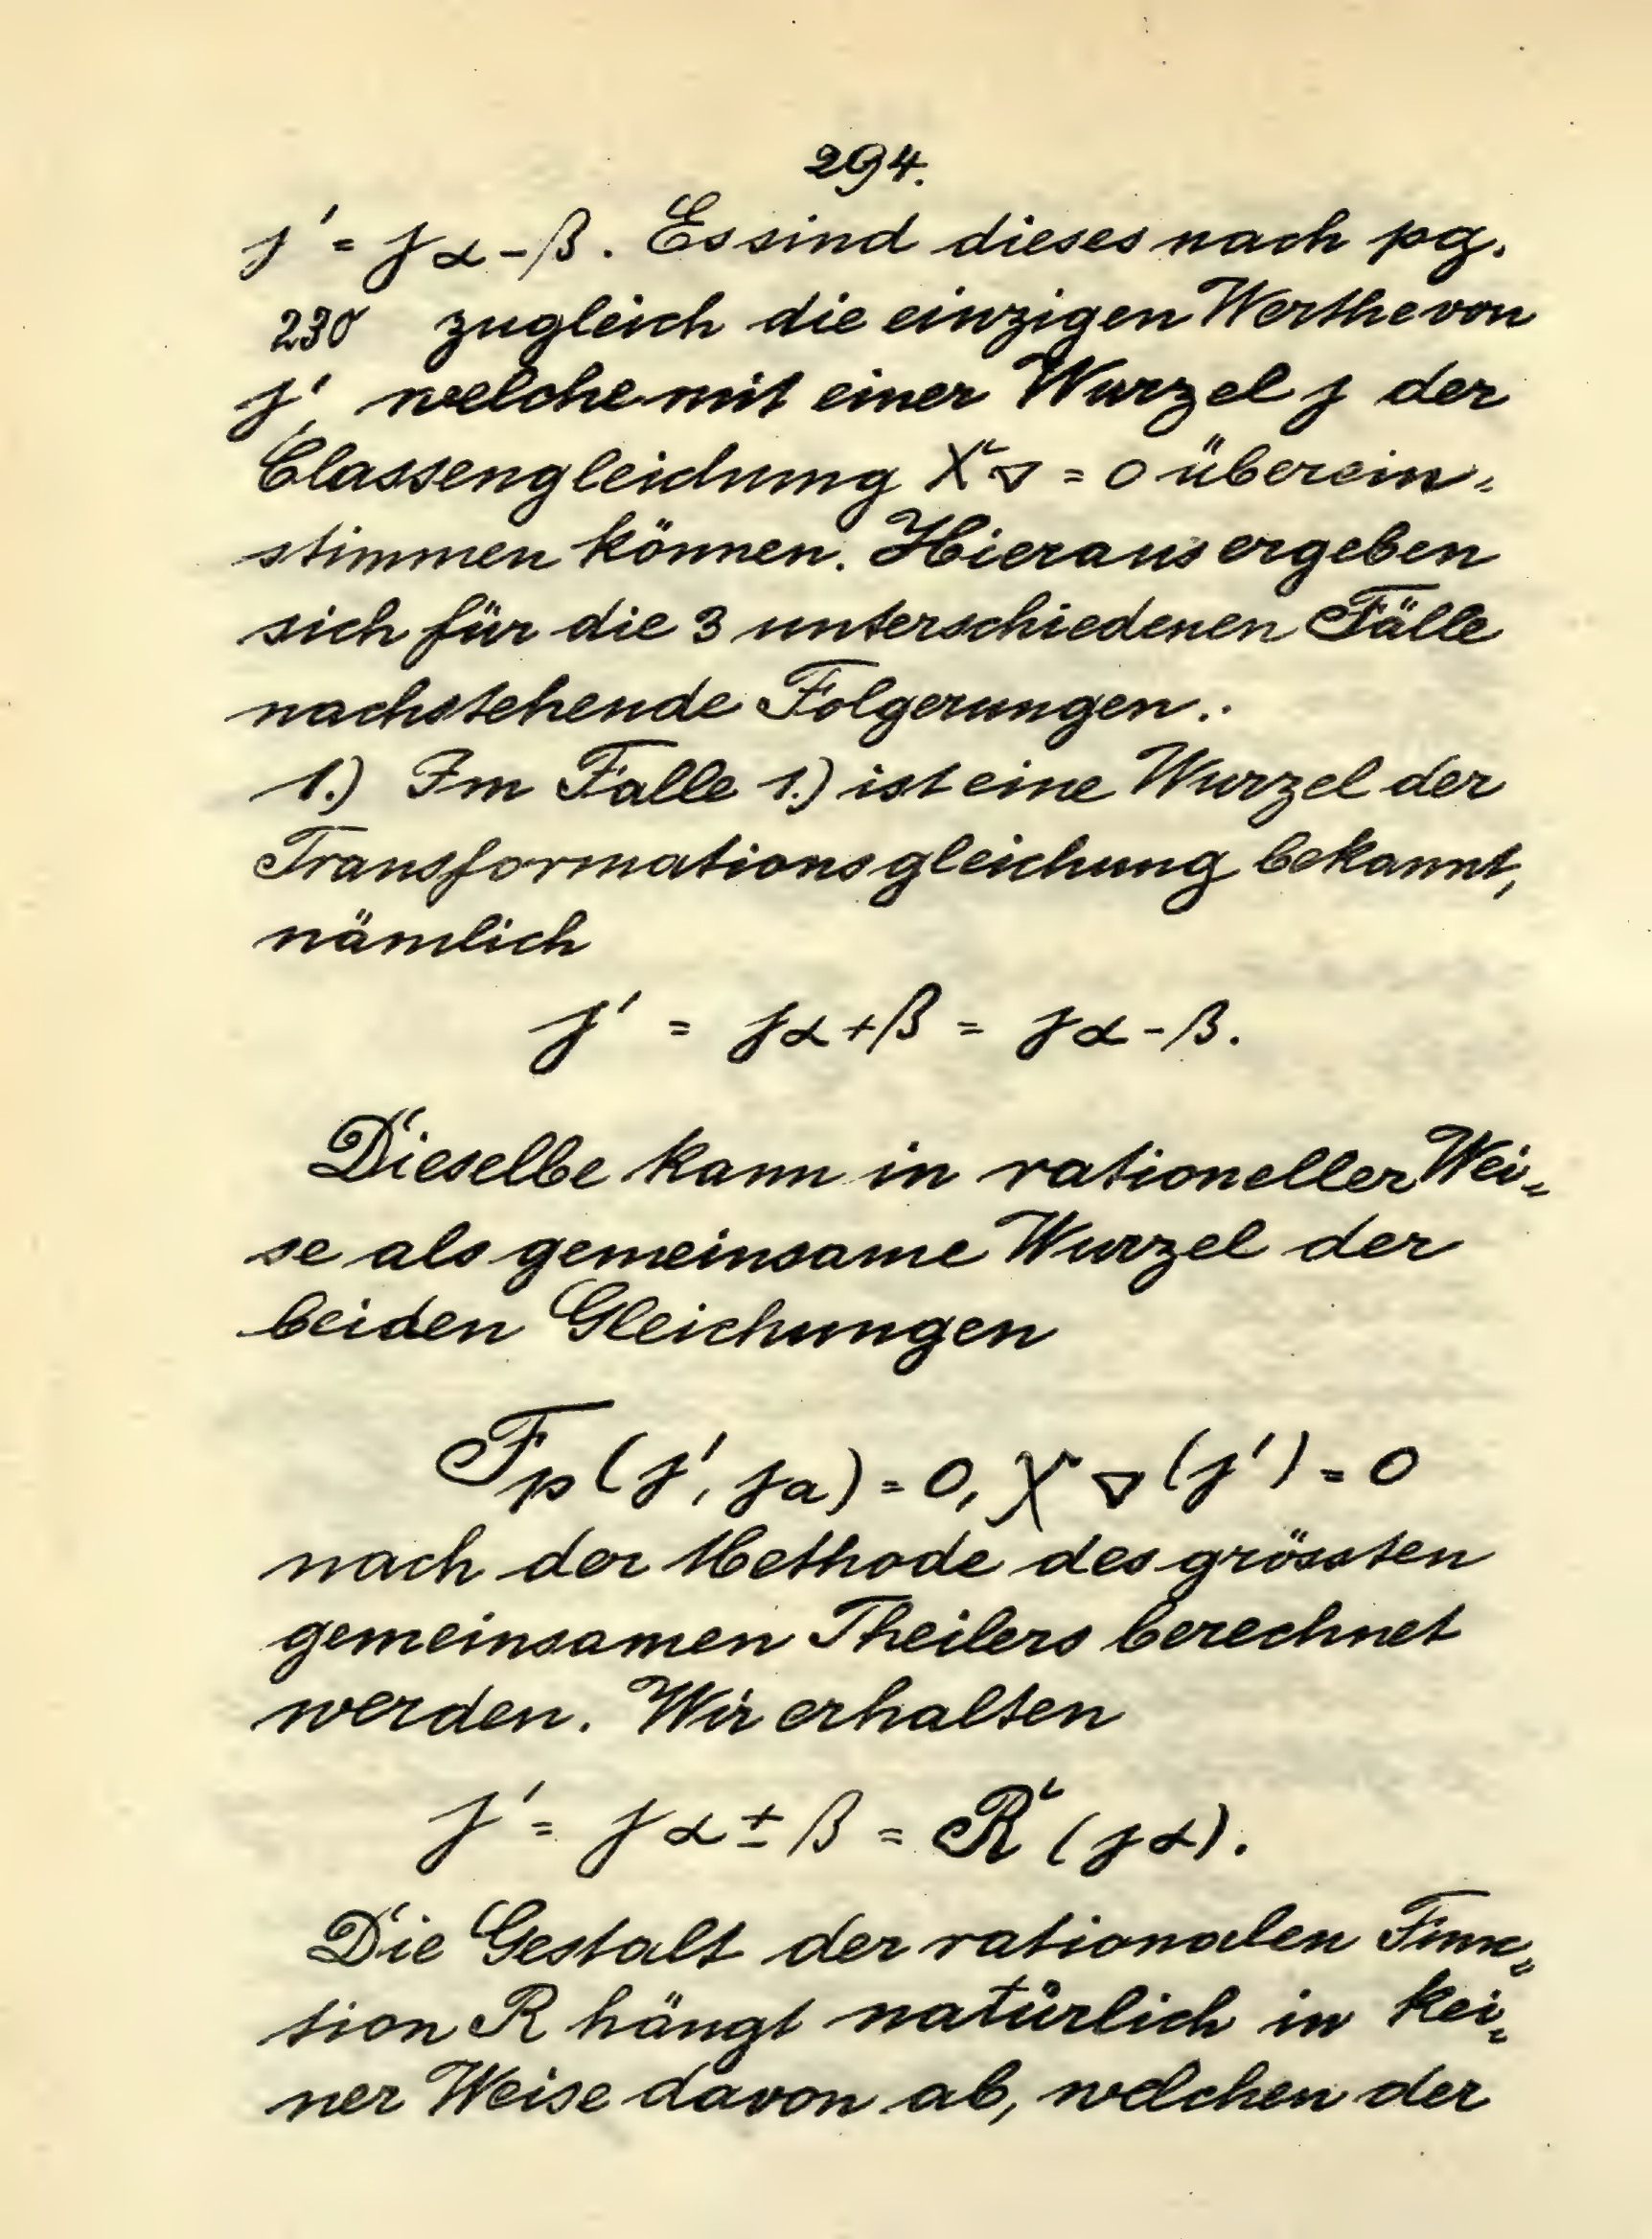 294.
j' = jα-β. Es sind dieses nach pg.
230 zugleich die einzigen Werthe von
j', welche mit einer Wurzel j der
Classengleichung X▽ = 0 überein-
stimmen können. Hieraus ergeben
sich für die 3 unterschiedenen Fälle
nachstehende Folgerungen.
1.) Im Falle 1.) ist eine Wurzel der
Transformationsgleichung bekannt,
nämlich
j' = jα+β = jα-β.
Dieselbe kann in rationeller Wei-
se als gemeinsame Wurzel der
beiden Gleichungen
Fp(j', ja) = 0, X▽(j') = 0
nach der Methode des grössten
gemeinsamen Theilers berechnet
werden. Wir erhalten
j' = jα±β = R(jα).
Die Gestalt der rationalen Func-
tion R hängt natürlich in kei-
ner Weise davon ab, welchen der